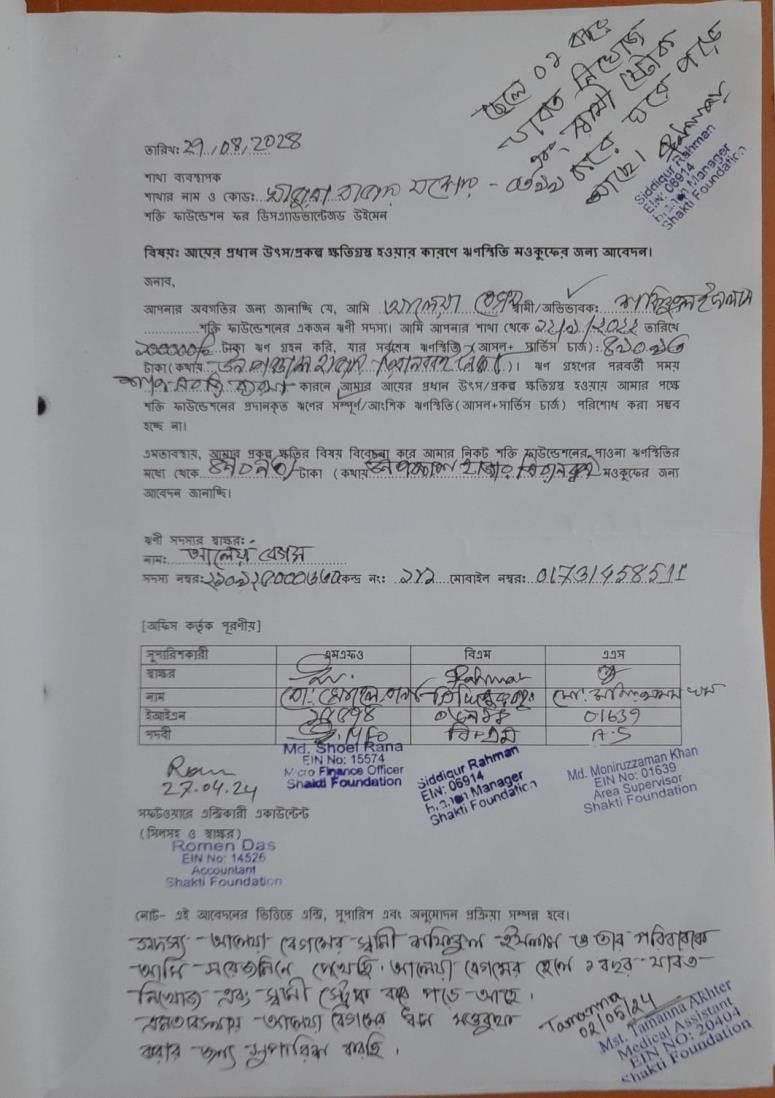 ছেলে ০১ বছর
যাবত নিখোঁজ
এবং স্বামী স্ট্রোক
করে ঘরে পড়ে
আছে। Rahman
Siddiqur Rahman
EIN: 06914
Manager
Shakti Foundation
তারিখ: 29/08/2024
শাখা ব্যবস্থাপক
শাখার নাম ও কোড:
শক্তি ফাউন্ডেশন ফর ডিসএ্যাডভান্টেজড উইমেন
বিষয়: আয়ের প্রধান উৎস/প্রকল্প ক্ষতিগ্রস্থ হওয়ার কারণে ঋণস্থিতি মওকুফের জন্য আবেদন।
জনাব,
আপনার অবগতির জন্য জানাচ্ছি যে, আমি আলেয়া বেগম স্বামী/অভিভাবক: ইসলাম
শক্তি ফাউন্ডেশনের একজন ঋণী সদস্য। আমি আপনার শাখা থেকে তারিখে
১০০০০০/= টাকা ঋণ গ্রহন করি, যার সর্বশেষ ঋণস্থিতি (আসল+ সার্ভিস চার্জ):
টাকা (কথায়: )। ঋণ গ্রহণের পরবর্তী সময়
কারনে আমার আয়ের প্রধান উৎস/প্রকল্প ক্ষতিগ্রস্থ হওয়ায় আমার পক্ষে
শক্তি ফাউন্ডেশনের প্রদানকৃত ঋণের সম্পূর্ণ/আংশিক ঋণস্থিতি (আসল+সার্ভিস চার্জ) পরিশোধ করা সম্ভব
হচ্ছে না।
এমতাবস্থায়, আমার প্রকল্প ক্ষতির বিষয় বিবেচনা করে আমার নিকট শক্তি ফাউন্ডেশনের পাওনা ঋণস্থিতির
মধ্যে থেকে টাকা (কথায় ) মওকুফের জন্য
আবেদন জানাচ্ছি।
ঋণী সদস্যর স্বাক্ষর:
নাম: আলেয়া বেগম
সদস্য নম্বর: কেন্দ্র নং: মোবাইল নম্বর: 01731458511
[অফিস কর্তৃক পূরণীয়]
সুপারিশকারী এমএফও বিএম এএস
স্বাক্ষর Rahman
নাম মো: সোহেল রানা সিদ্দিকুর রহমান
ইআইএন 01639
পদবী MFO বিএম A.S
Md. Shoel Rana
EIN No: 15574
Micro Finance Officer
Shakti Foundation
Siddiqur Rahman
EIN: 06914
Manager
Shakti Foundation
Md. Moniruzzaman Khan
EIN No: 01639
Area Supervisor
Shakti Foundation
27.04.24
সফটওয়ারে এন্ট্রিকারী একাউন্টেন্ট
(সিলসহ ও স্বাক্ষর)
Romen Das
EIN No: 14526
Accountant
Shakti Foundation
নোট- এই আবেদনের ভিত্তিতে এন্ট্রি, সুপারিশ এবং অনুমোদন প্রক্রিয়া সম্পন্ন হবে।
সদস্য আলেয়া বেগমের স্বামী ইসলাম ও তার পরিবারকে
আমি সরেজমিনে দেখেছি। আলেয়া বেগমের ছেলে ১ বছর যাবত
নিখোঁজ এবং স্বামী স্ট্রোক করে পড়ে আছে।
এমতাবস্থায় আলেয়া বেগমের ঋণ মওকুফ
করার জন্য সুপারিশ করছি।
Tamanna
02/05/24
Mst. Tamanna Akhter
Medical Assistant
EIN NO: 20404
Shakti Foundation